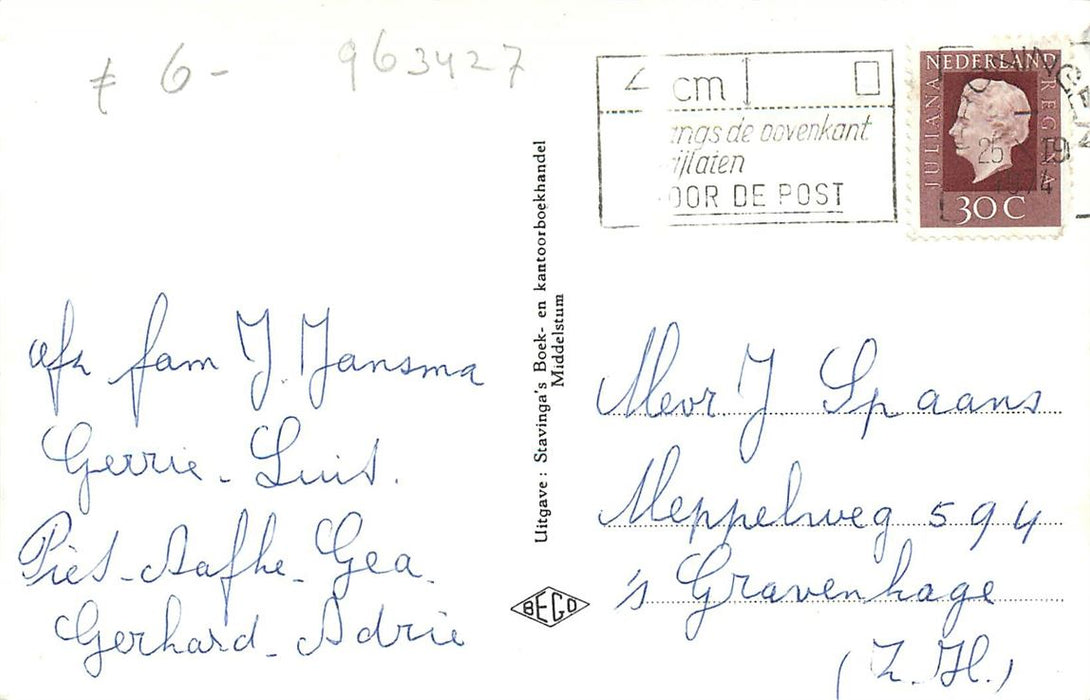 ƒ 6- 963427
4 cm
langs de bovenkant
vrijlaten
VOOR DE POST
NEDERLAND
JULIANA REGINA
30 C
25
19
1974
Uitgave : Stavinga's Boek- en kantoorboekhandel
Middelstum
BEGO
afz fam J. Jansma
Gerrie - Luit.
Piet - Aafke - Gea -
Gerhard - Adrie
Mevr J Spaans
Meppelweg 594
's Gravenhage
(Z. H.)